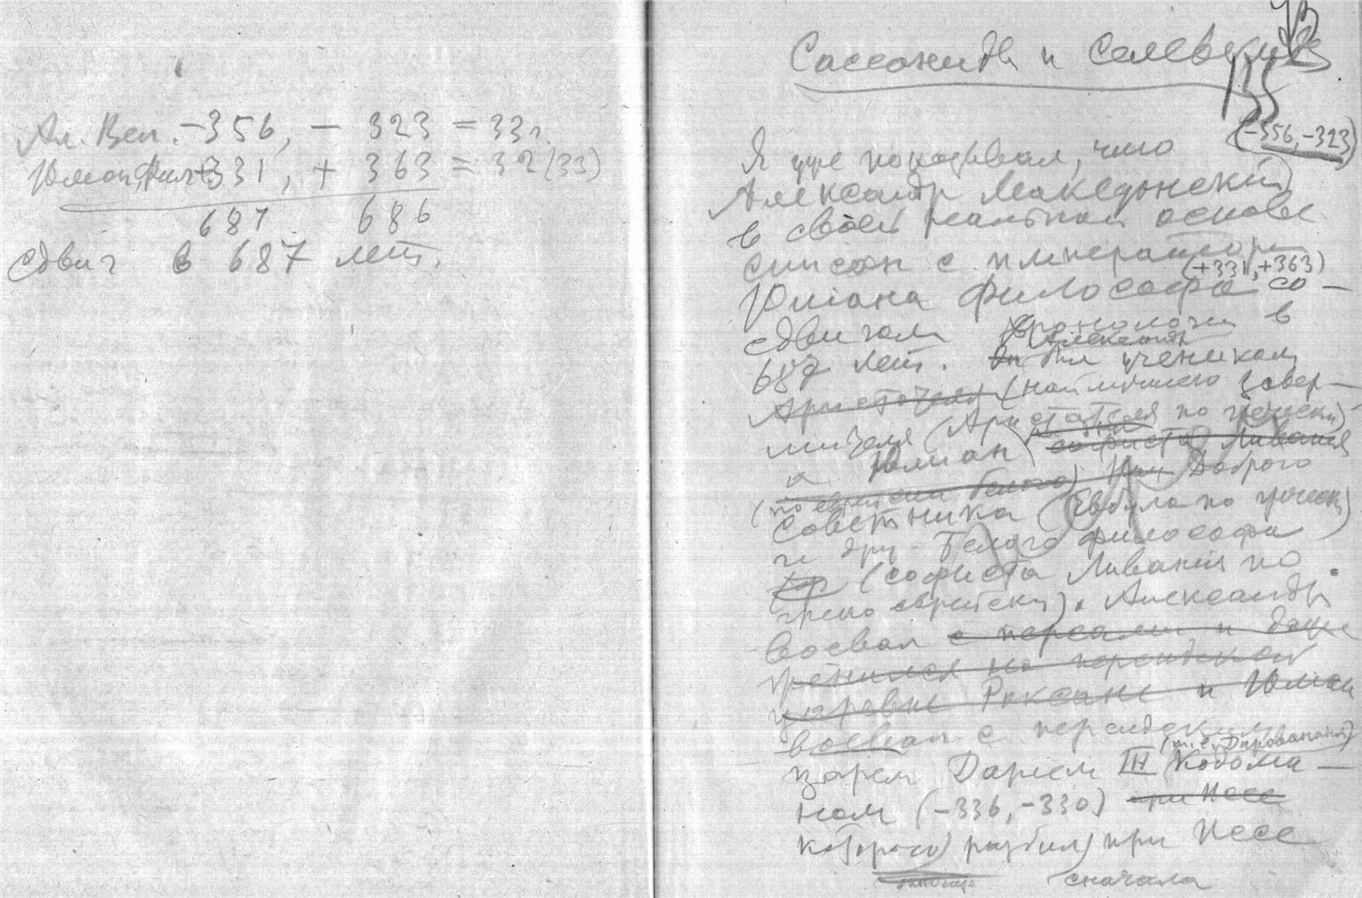 Ал. Вел. -356, - 323 = 33г.
Юлиан, Фил +331, + 363 = 32 (33)
687 686
сдвиг в 687 лет.
Сассаниды и Селевкиды
135
(-356, -323)
Я уже показывал, что
Александр Македонский
в своей реальной основе
списан с императора
(+331, +363)
Юлиана философа со
сдвигом хронологии в
Александр
687 лет. был учеником
Аристотеля (наилучшего завер-
шителя (Аристотеля по гречески)
а Юлиан софиста Ливания
(по еврейски белого) Доброго
советника (Евбула по гречески)
и др. Белого философа
(софиста Ливания по
греко еврейски). Александр
воевал с персами и даже
женился на персидской
царевне Роксане и Юлиан
воевал с персидским
(т.е. Дарованным)
царем Дарием III Кодома-
ном (-336, -330) при Иссе
которого разбил при Иссе
сначала